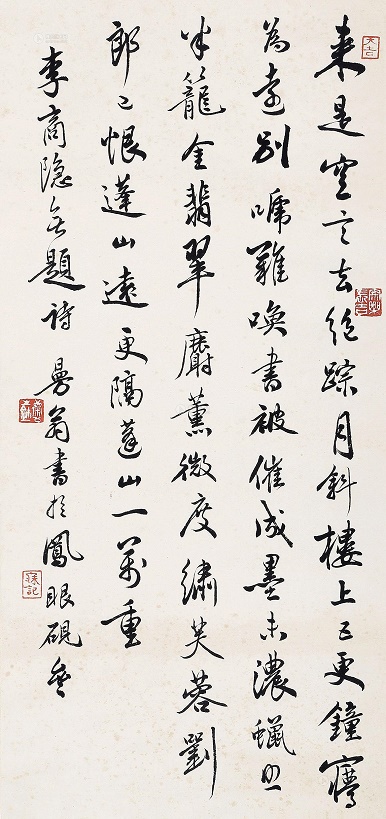 来是空言去絕踪月斜樓上五更鐘㝱
為遠別啼難喚書被催成墨未濃蠟照
半籠金翡翠麝薰微度繡芙蓉劉
郎已恨蓬山遠更隔蓬山一萬重
李商隐無題詩 曼翁書於鳳眼硯